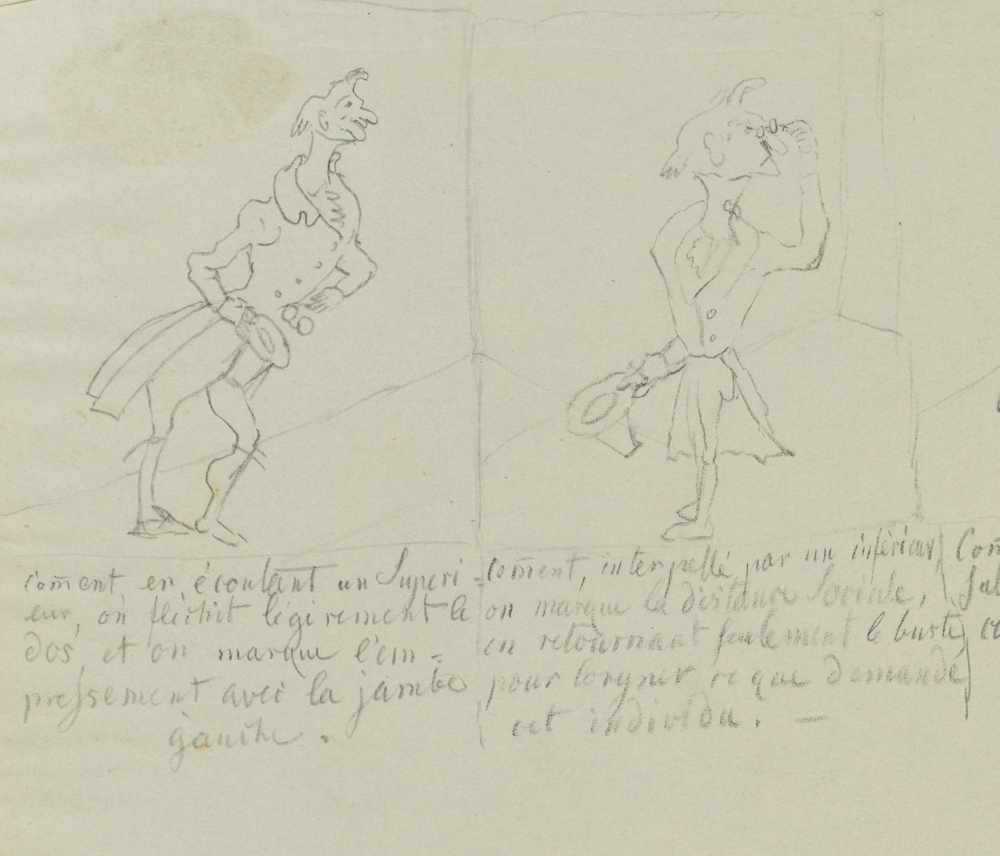 com̄ent, en écoutant un Superi=
eur, on fléchit légèrement le
dos, et on marque l'em=
pressement avec la jambe
gauche.
com̄ent, interpellé par un inférieur,
on marque la distance Sociale,
en retournant seulement le buste,
pour lorgner ce que demande
cet individu. —
Com